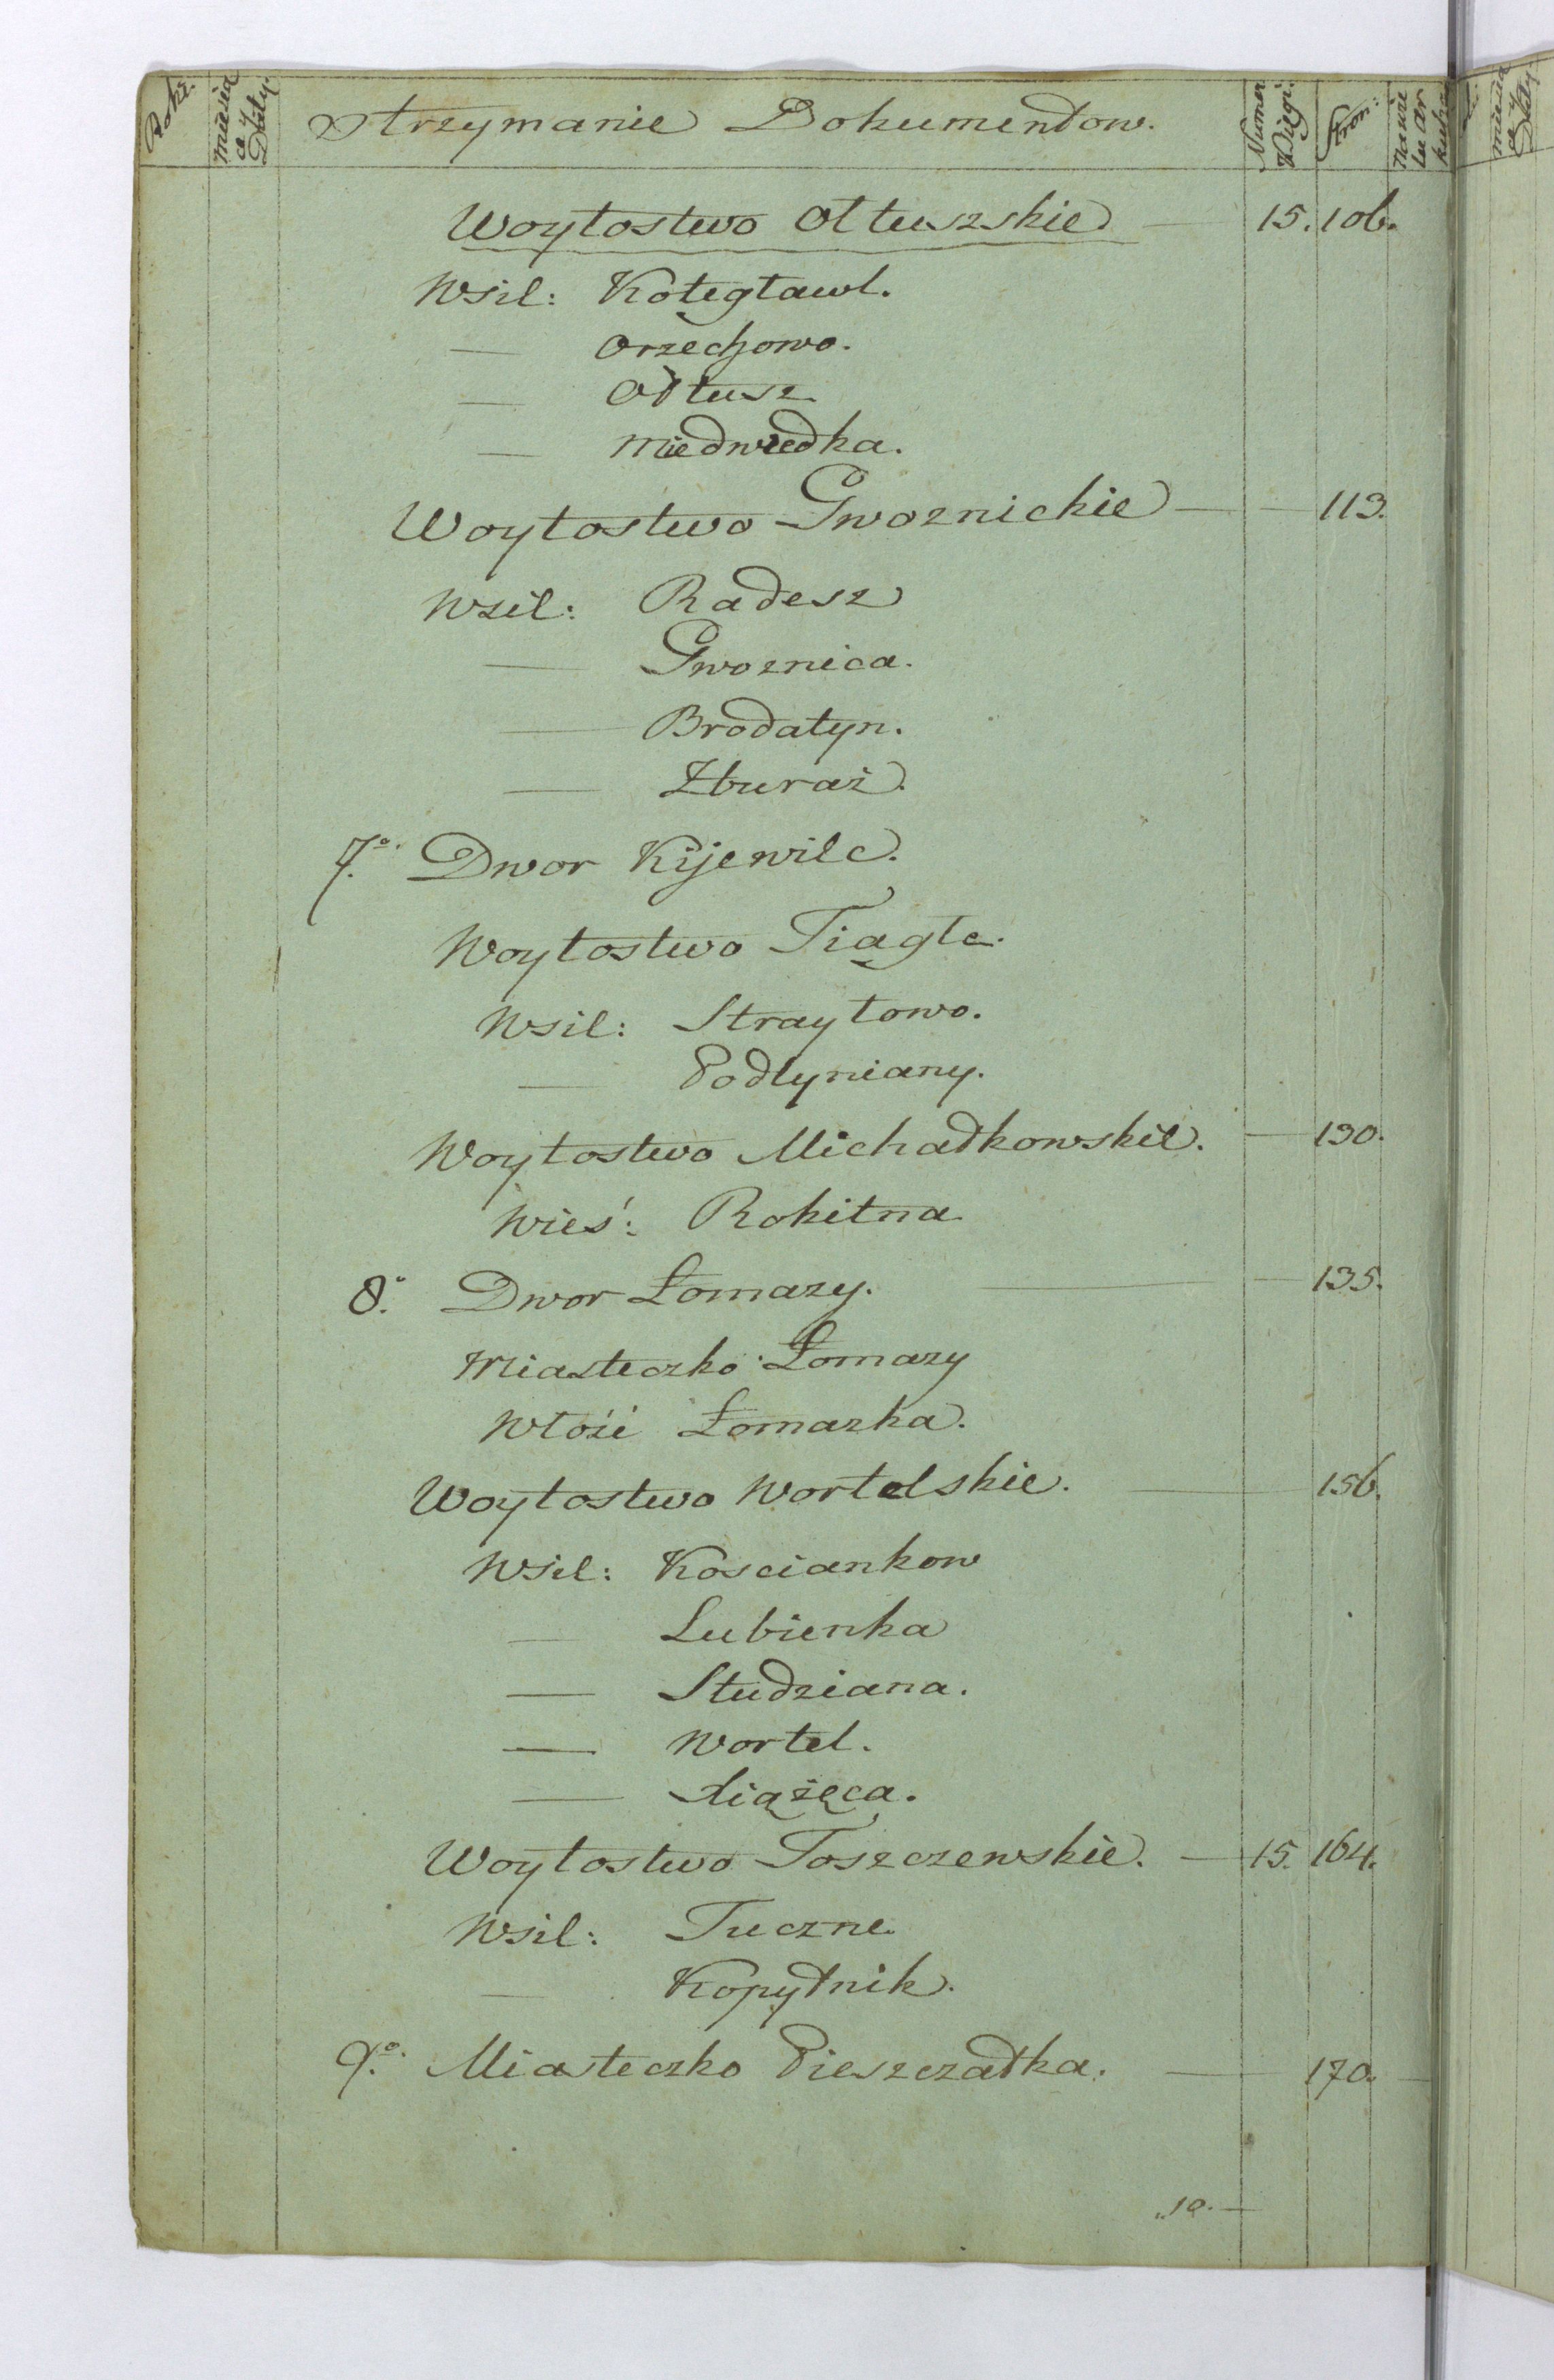 Roki. miesiące y Daty. Otrzymanie Dokumentow. Numer Xięgi. Stron:
Woytostwo Ołtuszskie — 15. 106.
Wsie: Kotegławl.
— Orzechowo.
— Ołtusz
— Miedwiedka.
Woytostwo Gwoznickie — — 113.
Wsie: Radesz
— Gwoznica.
— Brodatyn.
— Zburaż.
7.o Dwor Kijewiec.
Woytostwo Tiągłe.
Wsie: Straytowo.
— Podłyniany.
Woytostwo Michałkowskie. — 130.
Wieś: Rokitna
8.o Dwor Łomazy. — 135.
Miasteczko Łomazy
Włość Łomazka.
Woytostwo Wortelskie. — 156.
Wsie: Kosciankow
— Lubienka
— Studziana.
— Wortel.
— Xiążęca.
Woytostwo Toszczewskie. — 15. 164.
Wsie: Tuczne
— Kopytnik.
9.o Miasteczko Pieszczatka. — 170. —